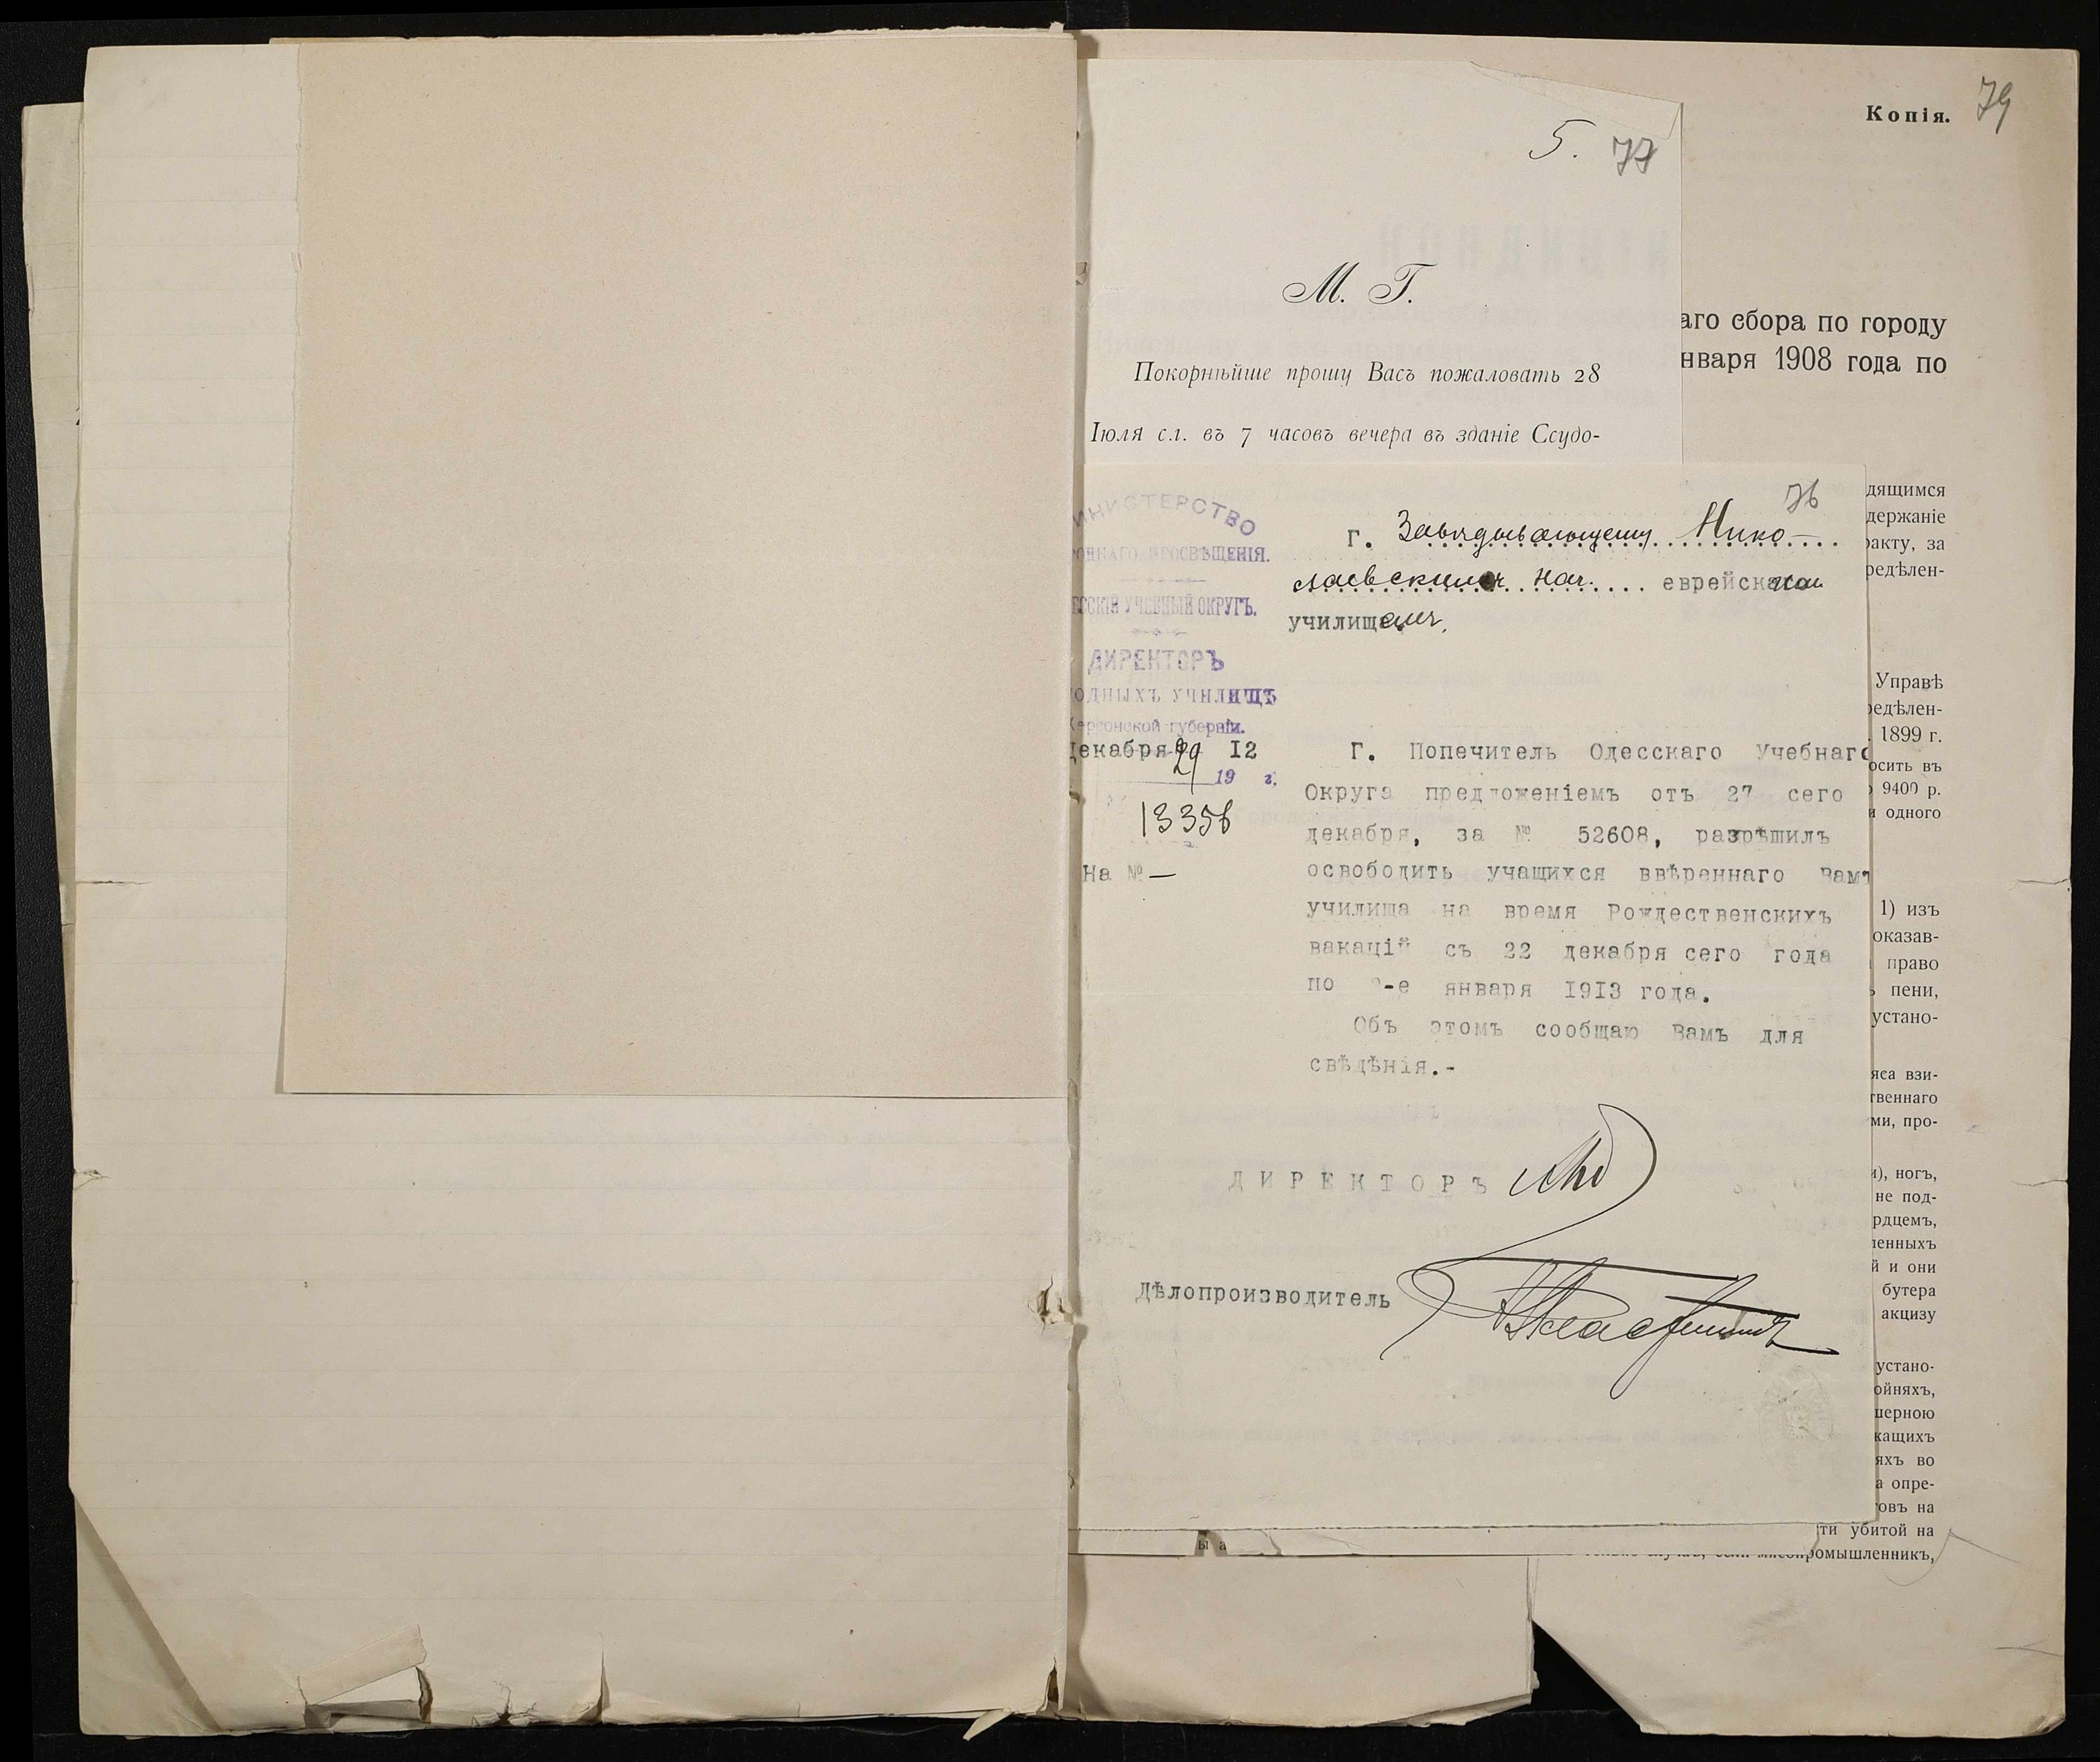 Копія. 79
5. 77
М. Г.
аго сбора по городу
нваря 1908 года по
Покорнѣйше прошу Васъ пожаловать 28
Іюля с.г. въ 7 часовъ вечера въ зданіе Ссудо-
76
ИНИСТЕРСТВО
ОДНАГО ПРОСВѢЩЕНІЯ.
ЕССКІЙ УЧЕБНЫЙ ОКРУГЪ.
ДИРЕКТОРЪ
ОДНЫХЪ УЧИЛИЩЪ
Херсонской губерніи.
Декабря 29 12
19 г.
13356
На № —
Г. Завѣдывающему Нико-
лаевскимъ нач. еврейскимъ
училищемъ.
Г. Попечитель Одесскаго Учебнаго
Округа предложеніемъ отъ 27 сего
декабря, за № 52608, разрѣшилъ
освободить учащихся ввѣреннаго Вамъ
училища на время Рождественскихъ
вакацій съ 22 декабря сего года
по -е января 1913 года.
Объ этомъ сообщаю Вамъ для
свѣдѣнія.-
ДИРЕКТОРЪ
Дѣлопроизводитель
дящимся
держаніе
акту, за
редѣлен-
Управѣ
редѣлен-
1899 г.
осить въ
9400 р.
и одного
1) изъ
оказав-
право
пени,
устано-
яса взи-
твеннаго
ми, про-
и), ногъ,
не под-
рдцемъ,
ленныхъ
й и они
бутера
акцизу
устано-
ойняхъ,
шерною
жащихъ
яхъ во
а опре-
товъ на
ти убитой на
мясопромышленникъ,